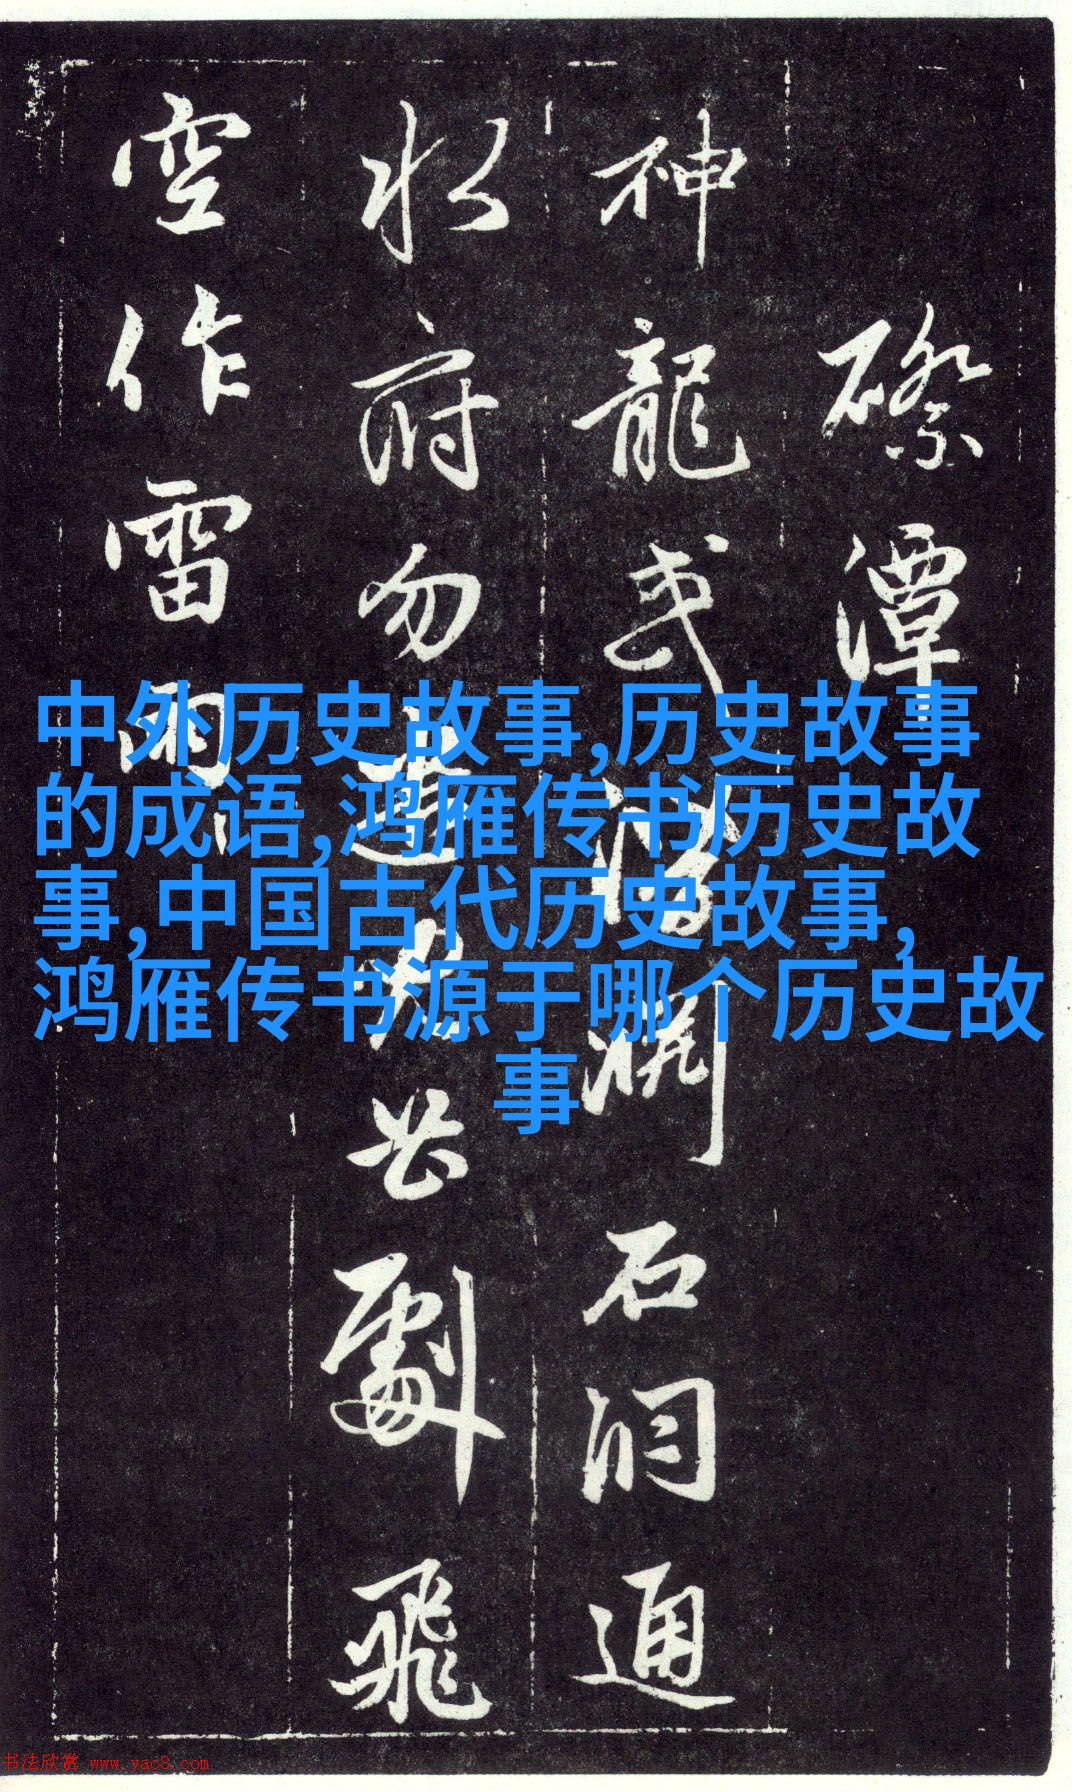 磜潭
神龍或潛淵石洞通
水府勿遣電母劈飛
空作雷雨
中外历史故事,历史故事
的成语,鸿雁传书历史故
事,中国古代历史故事,
鸿雁传书源于哪个历史故
事
书法欣赏 www.yac8.com